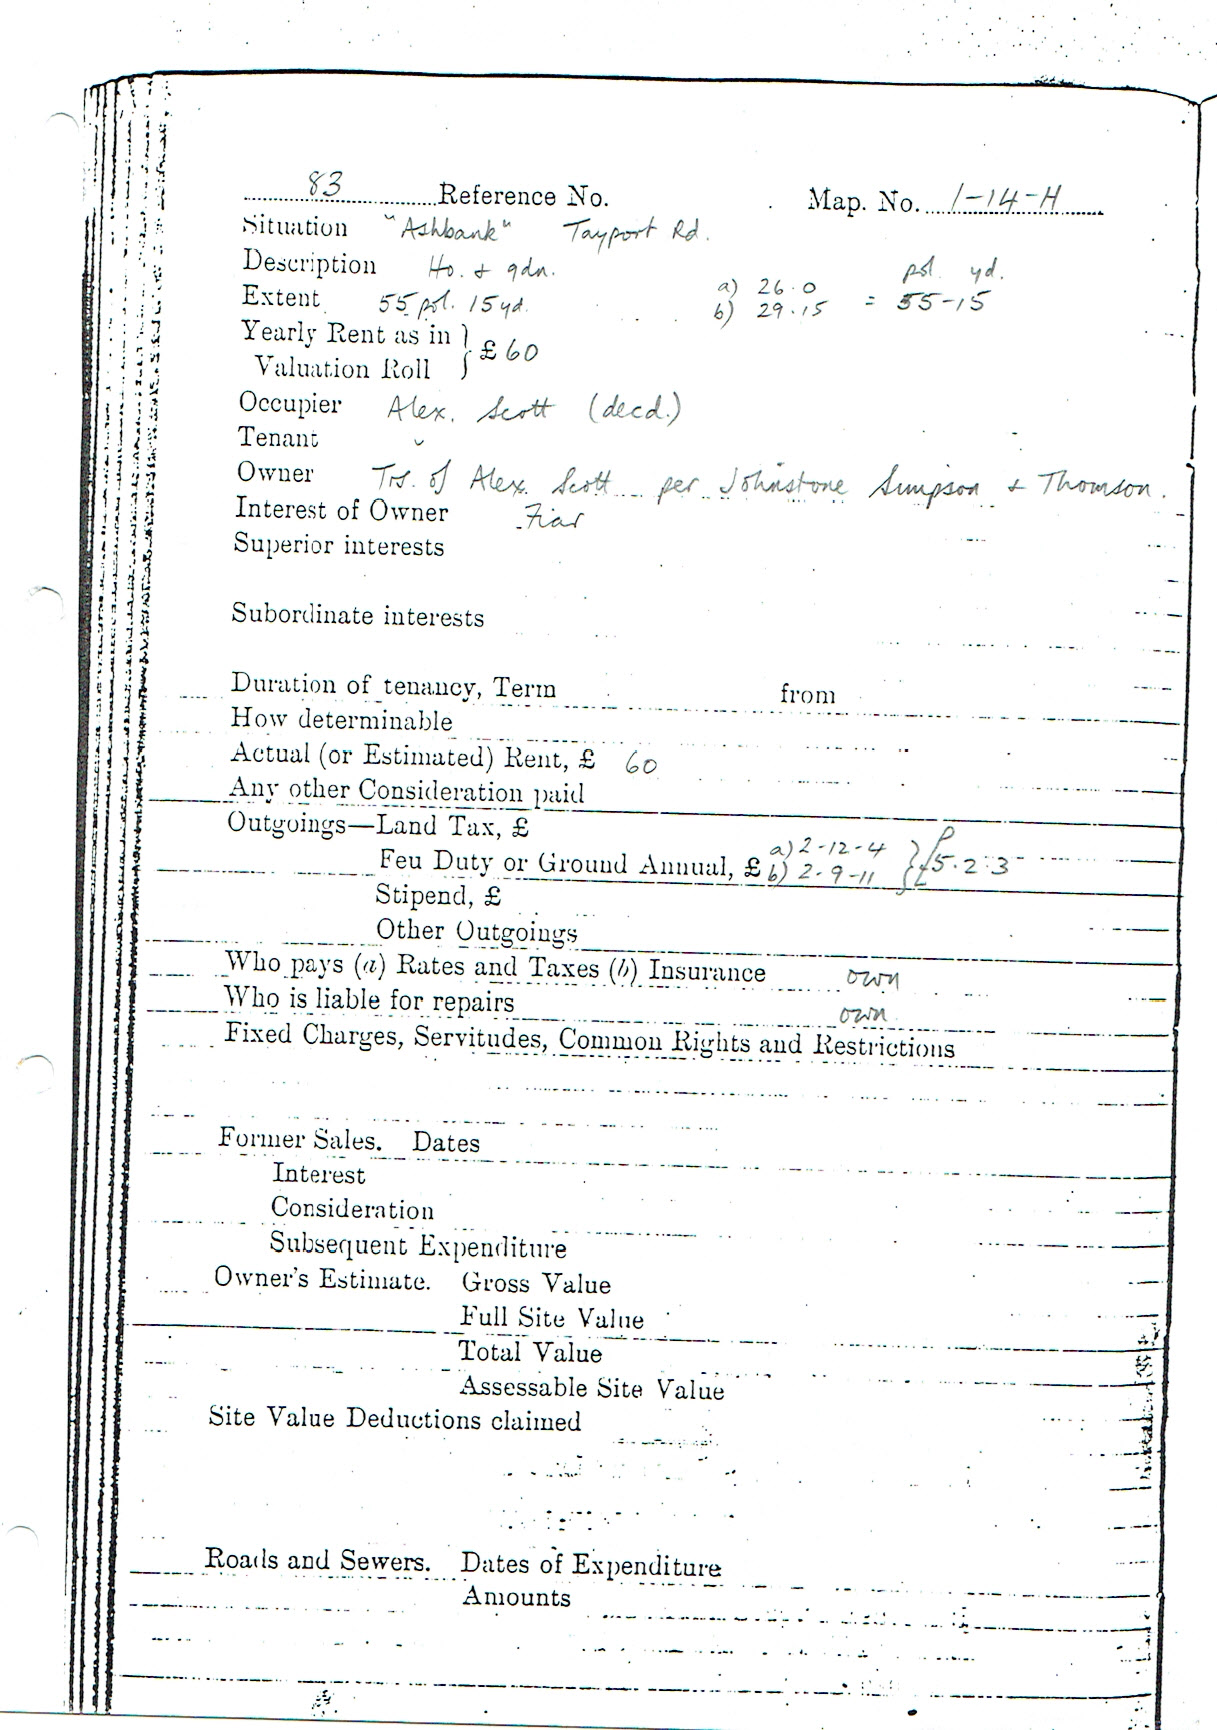 83 Reference No. Map. No. 1-14-H
Situation "Ashbank" Tayport Rd.
Description Ho. & gdn. pol. yd.
Extent 55 pol. 15 yd. a) 26.0
b) 29.15 = 55-15
Yearly Rent as in } £60
Valuation Roll
Occupier Alex. Scott (decd.)
Tenant
Owner Trs. of Alex. Scott per Johnstone Simpson & Thomson.
Interest of Owner Fiar
Superior interests
Subordinate interests
Duration of tenancy, Term from
How determinable
Actual (or Estimated) Rent, £ 60
Any other Consideration paid
Outgoings—Land Tax, £
a) 2-12-4
Feu Duty or Ground Annual, £ b) 2-9-11 } 5.2.3
Stipend, £
Other Outgoings
Who pays (a) Rates and Taxes (b) Insurance own
Who is liable for repairs own
Fixed Charges, Servitudes, Common Rights and Restrictions
Former Sales. Dates
Interest
Consideration
Subsequent Expenditure
Owner's Estimate. Gross Value
Full Site Value
Total Value
Assessable Site Value
Site Value Deductions claimed
Roads and Sewers. Dates of Expenditure
Amounts